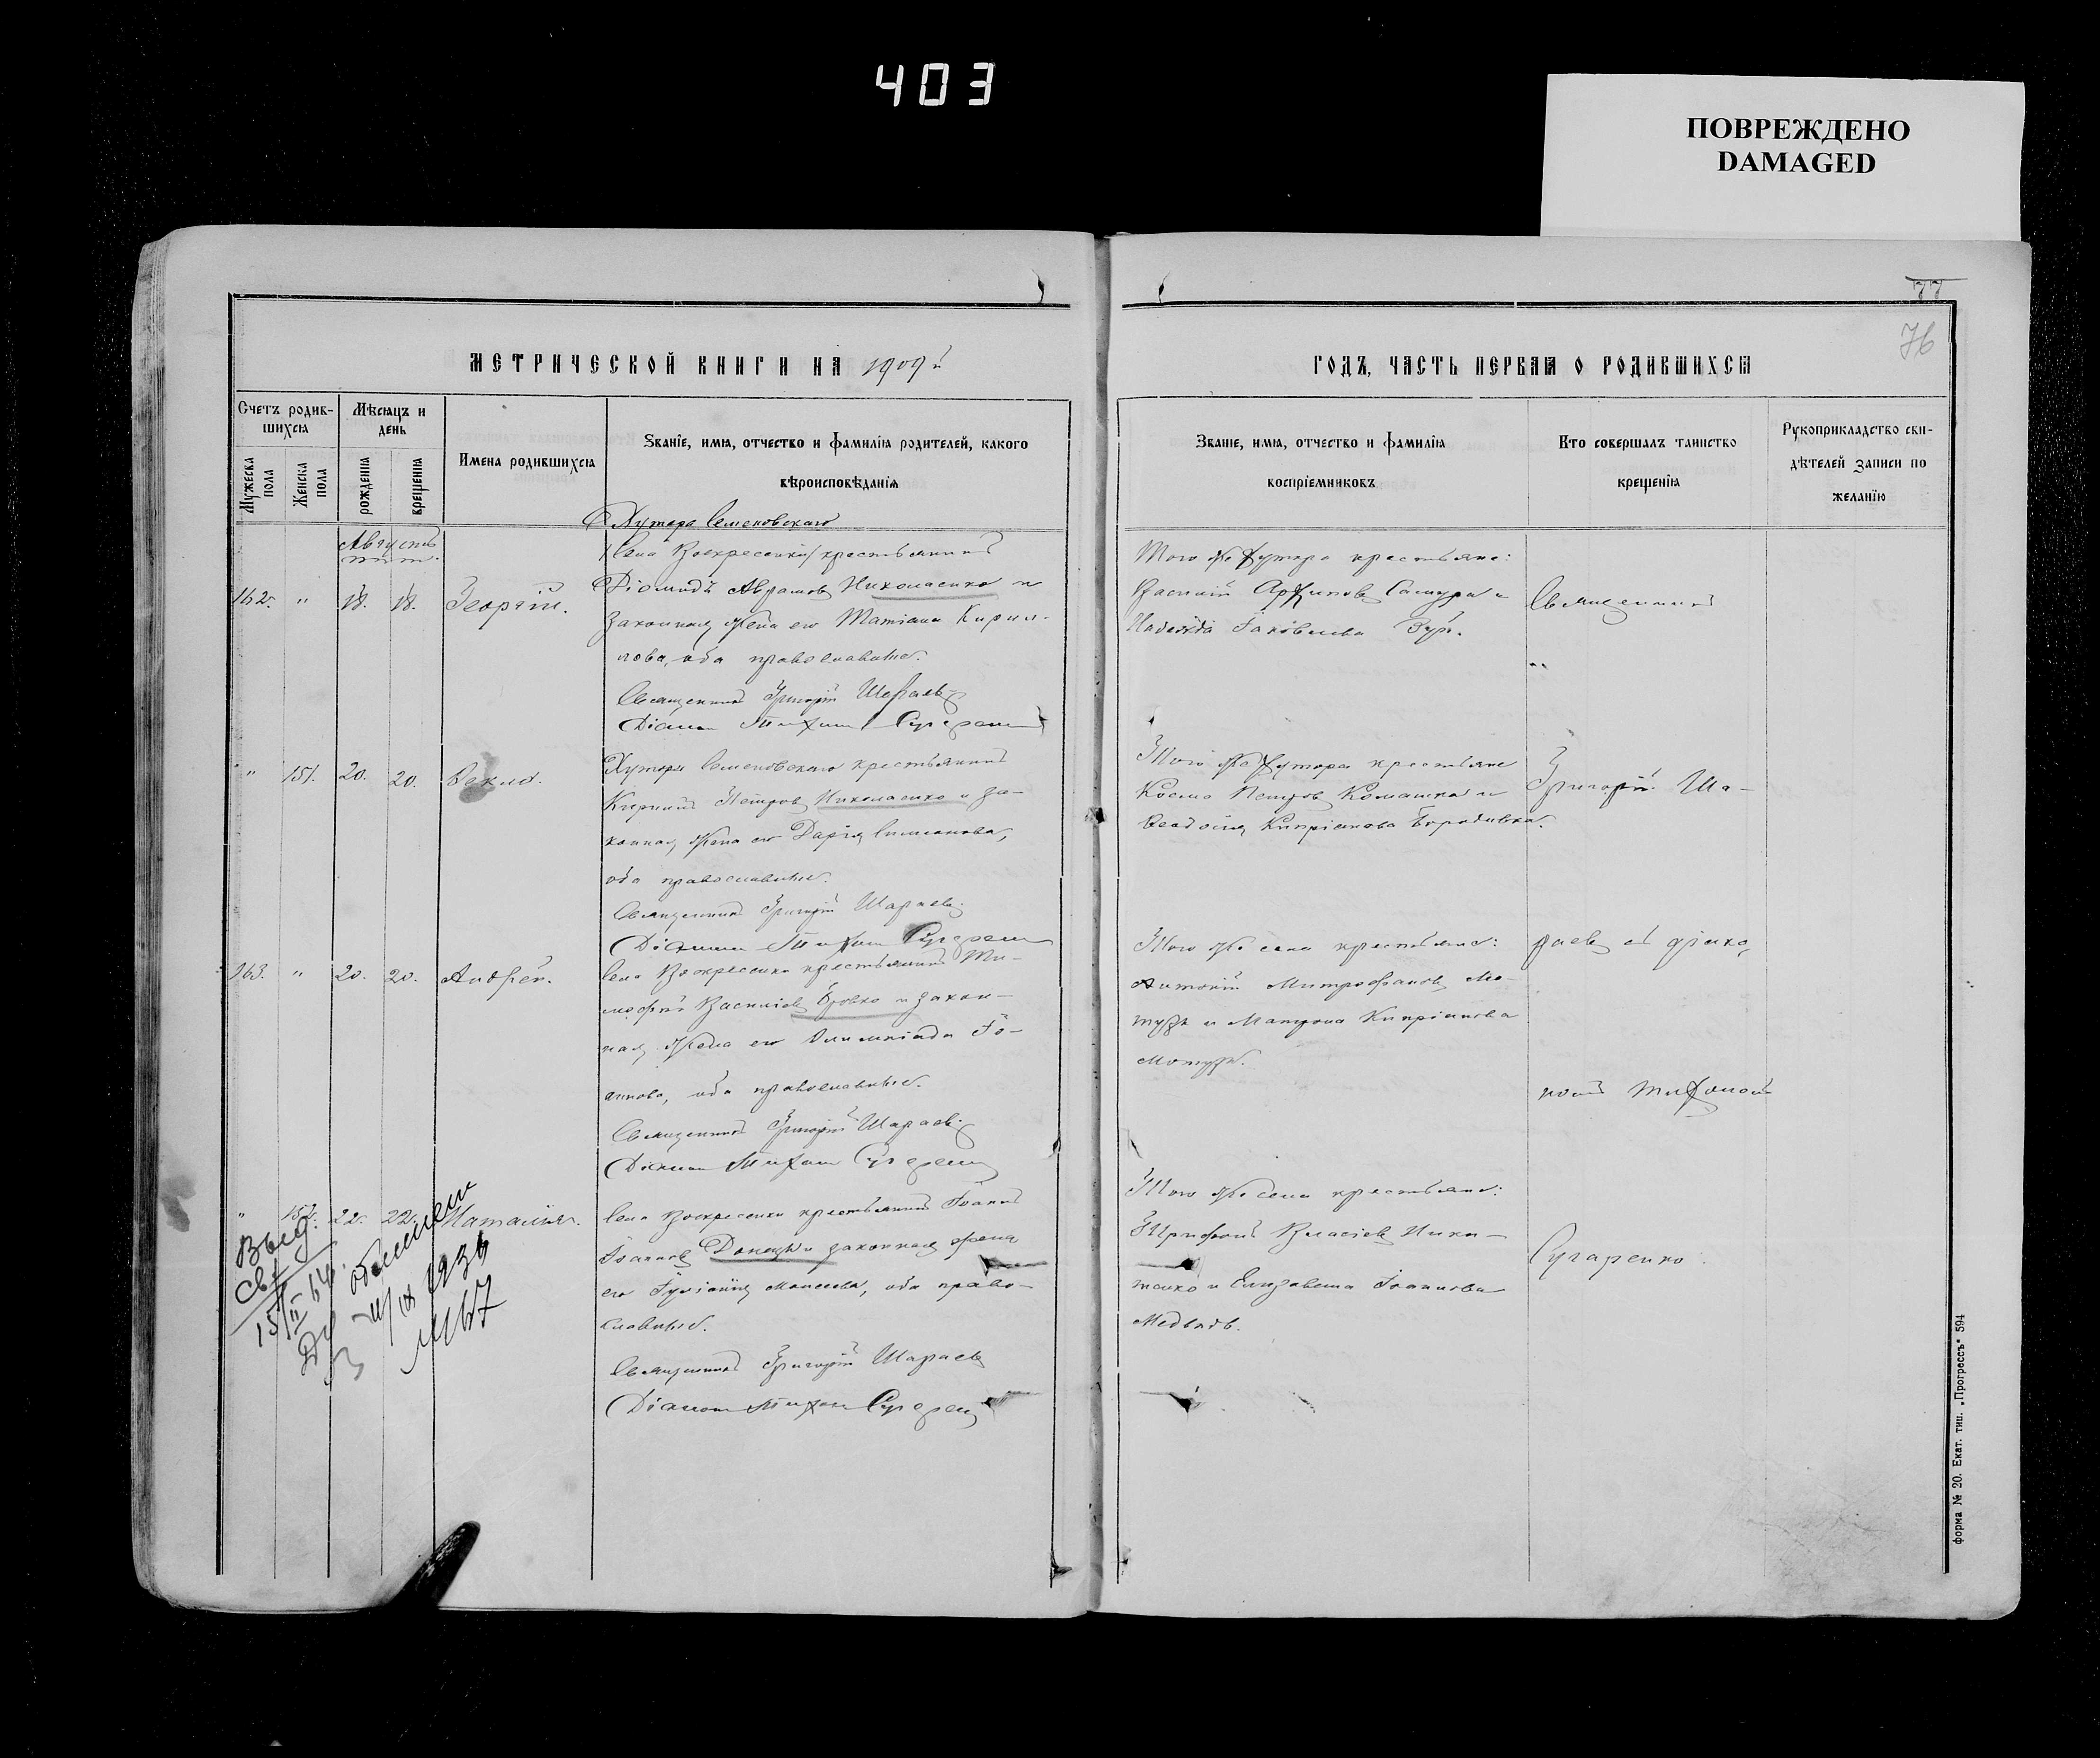 403
ПОВРЕЖДЕНО
DAMAGED
77
76
МЕТРИЧЕСКОЙ КНИГИ НА 1909й
ГОДЪ, ЧАСТЬ ПЕРВАЯ О РОДИВШИХСЯ
Счетъ родившихся
Мужеска пола
Женска пола
Мѣсяцъ и день
рожденія
крещенія
Имена родившихся
Званіе, имя, отчество и фамилія родителей, какого вѣроисповѣданія
Званіе, имя, отчество и фамилія воспріемниковъ
Кто совершалъ таинство крещенія
Рукоприкладство свидѣтелей записи по желанію
Августъ
" 18. 18. Георгій.
Хутора Семеновскаго
села Воскресенки крестьянинъ
Діомидъ Аврамовъ Николаенко и
законная жена его Татіана Кирил-
лова, оба православные.
Священникъ Григорій Шараевъ
Діаконъ Тихонъ
Того же хутора крестьяне:
Архиповъ и
Надежда Іаковлева
Священникъ
" 151. 20. 20. Ѳекла.
Хутора Семеновскаго крестьянинъ
Петровъ Николаенко и за-
конная жена его Дарія Симеонова,
оба православные.
Священникъ Григорій Шараевъ
Діаконъ Тихонъ
Того же хутора крестьяне
Косма Петровъ и
Ѳеодосія Кипріанова
Григорій Ша-
163. " 20. 20. Андрей.
Села Воскресенки крестьянинъ Ти-
моѳей Василіевъ Бровко и закон-
ная жена его Олимпіада Іо-
аннова, оба православные.
Священникъ Григорій Шараевъ
Діаконъ Тихонъ
Того же села крестьяне:
Антоній Митрофановъ Мо-
тузъ и Матрона Кипріанова
Мотузъ.
раевъ съ діако-
номъ Тихономъ
" 152. 22. 22. Наталія.
Села Воскресенки крестьянинъ Іоаннъ
Іоанновъ Донецъ и законная жена
его Іуліанія Моисеева, оба право-
славные.
Священникъ Григорій Шараевъ
Діаконъ Тихонъ
Того же села крестьяне:
Трифонъ Власіевъ Ники-
тенко и Елизавета Іоаннова
Медвѣдь.
Сугаренко
Выд
Св.
форма № 20. Екат. тип. „Прогрессъ“ 594